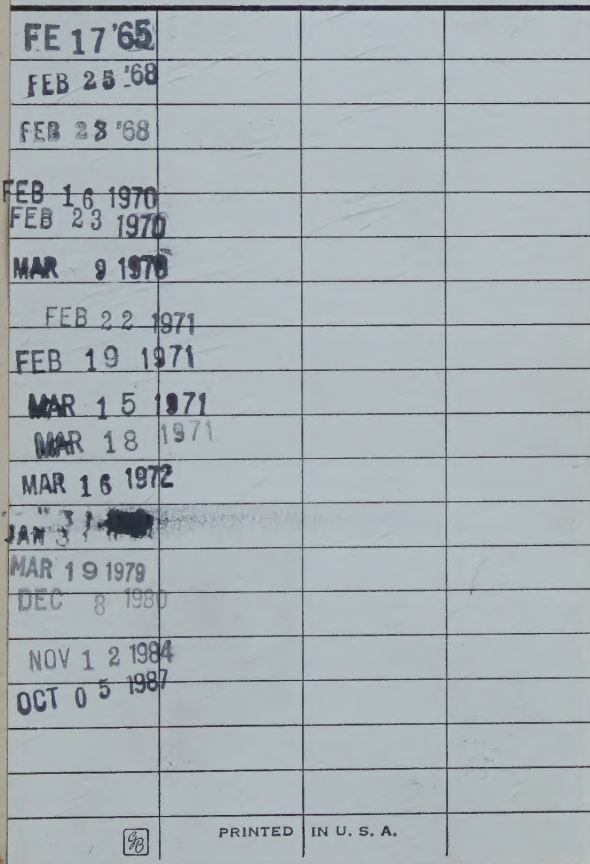 FE 17 '65
FEB 25 '68
FEB 28 '68
FEB 16 1970
FEB 23 1970
MAR 9 1970
FEB 22 1971
FEB 19 1971
MAR 15 1971
MAR 18 1971
MAR 16 1972
JAN 31
MAR 19 1979
DEC 8 1980
NOV 12 1984
OCT 05 1987
GB PRINTED IN U. S. A.